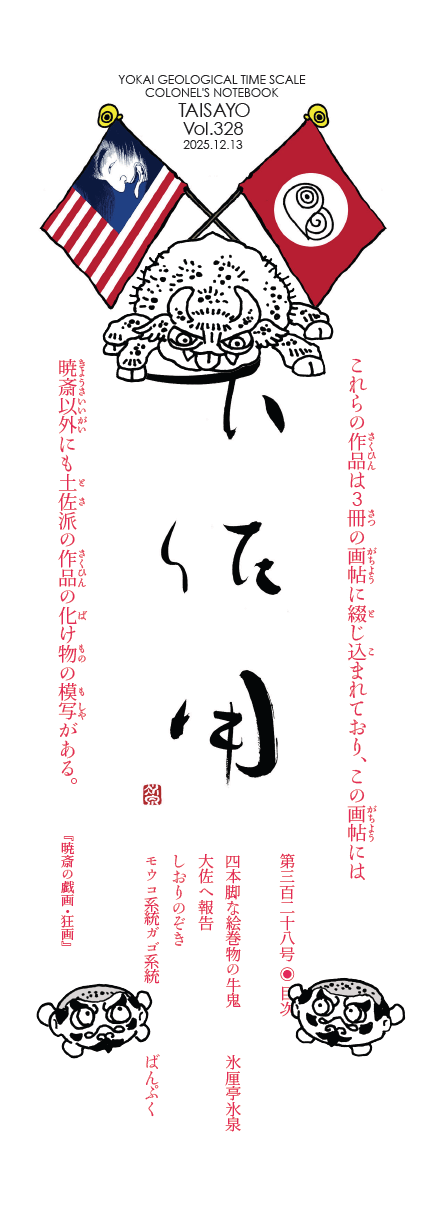 YOKAI GEOLOGICAL TIME SCALE
COLONEL'S NOTEBOOK
TAISAYO
Vol.328
2025.12.13
大佐用
これらの作品は3冊の画帖に綴じ込まれており、この画帖には
さくひん さつ がちょう と こ がちょう
暁斎以外にも土佐派の作品の化け物の模写がある。
きょうさいいがい とさ さくひん ば もの もしゃ
『暁斎の戯画・狂画』
第三百二十八号◉目次
四本脚な絵巻物の牛鬼 氷厘亭氷泉
大佐へ報告
しおりのぞき
モウコ系統ガゴ系統 ばんぷく